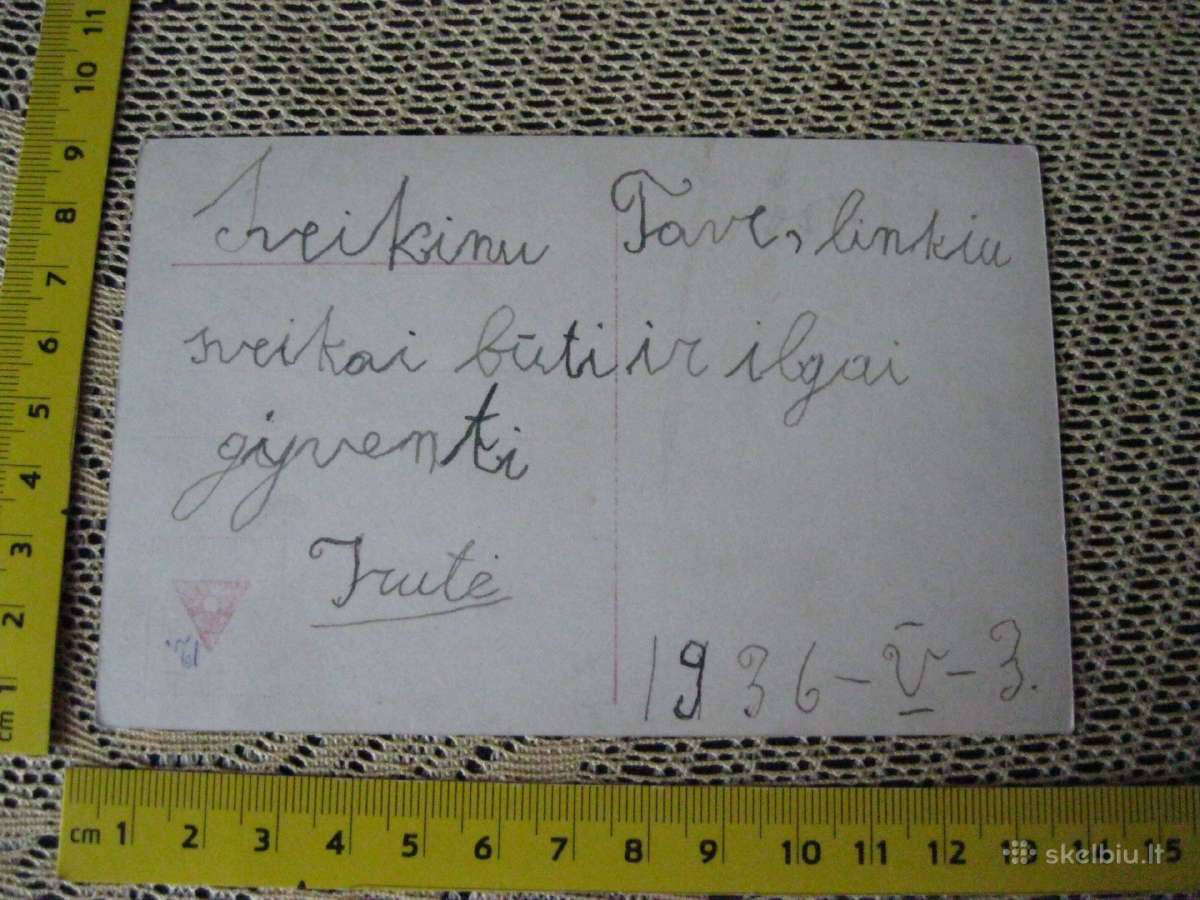 Sveikinu Tave, linkiu
sveikai būti ir ilgai
gyventi
Irutė
1936-V-3.
12.
cm 1 2 3 4 5 6 7 8 9 10 11
cm 1 2 3 4 5 6 7 8 9 10 11 12 13 14 15
skelbiu.lt